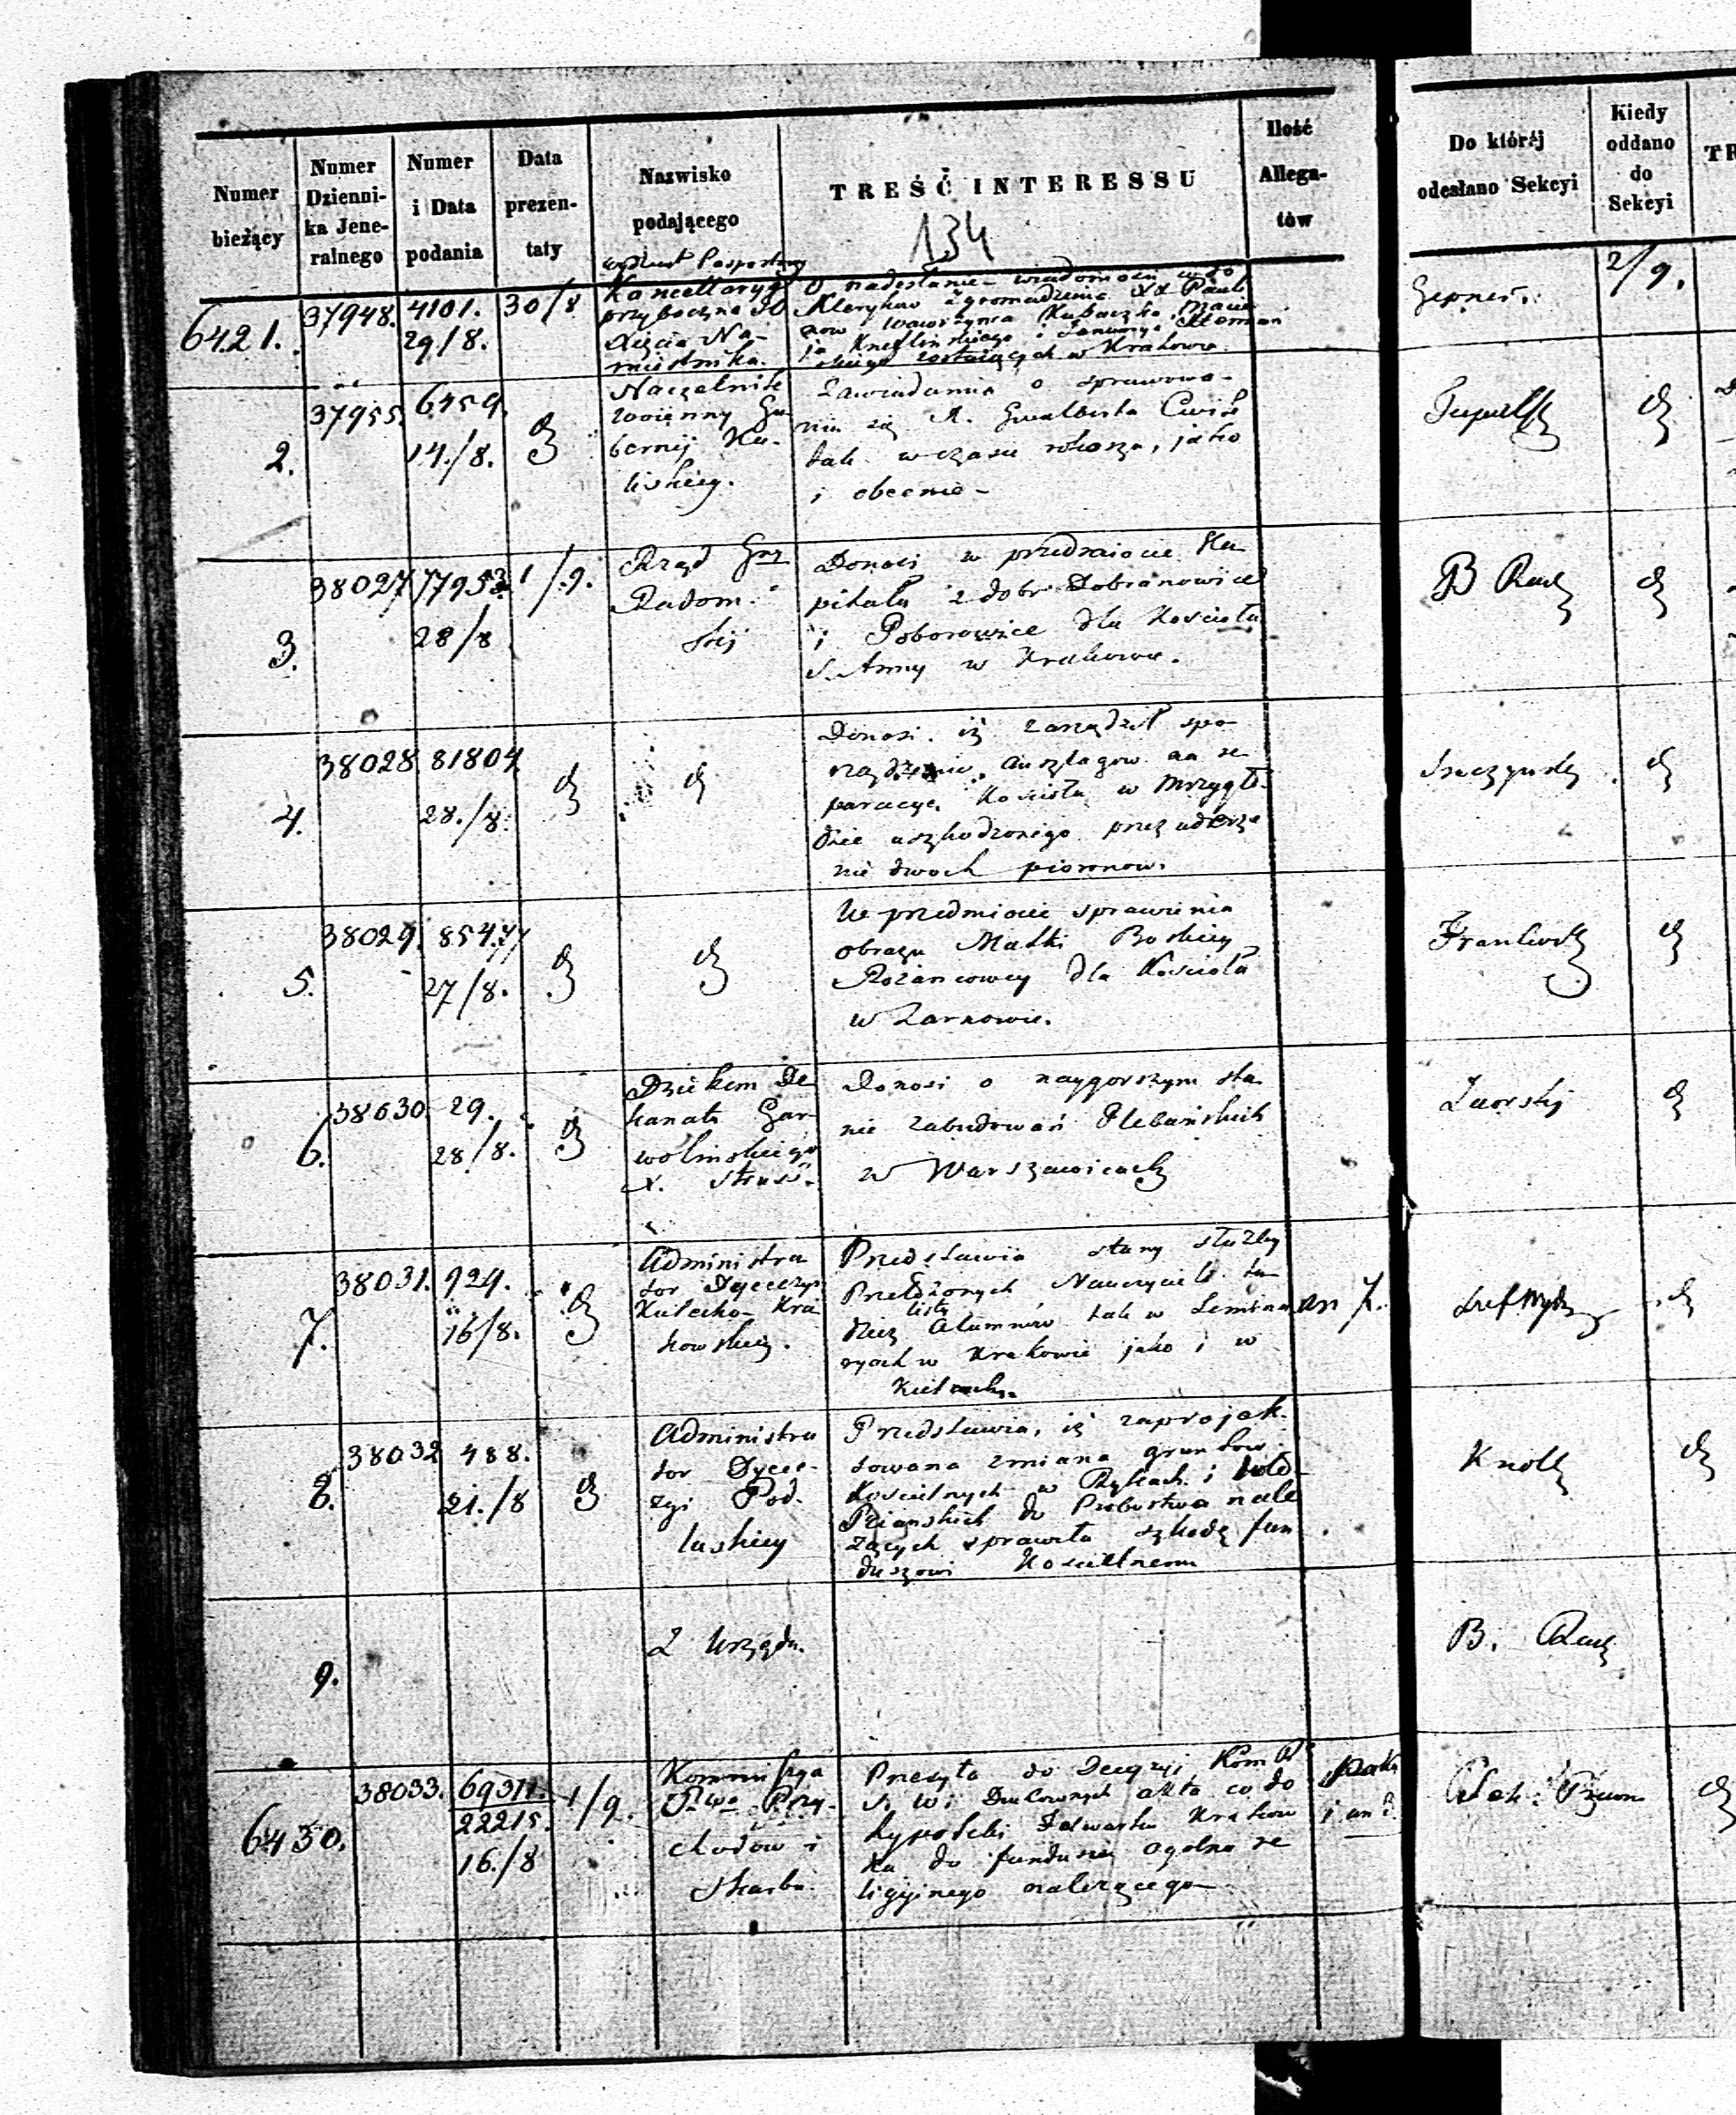 Numer
bieżący
Numer
Dzienni-
ka Jene-
ralnego
Numer
i Data
podania
Data
prezen-
taty
Nazwisko
podającego
TREŚĆ INTERESSU
134
Ilość
Allega-
tów
Do którój
odesłano Sekcyi
Kiedy
oddano
do
Sekcyi
TR
6421.
37948.
4101.
29/8.
30/8
wydział Paszportowy
Kancellarya
przyboczna JO
Xięcia Na-
miestnika.
O nadesłanie wiadomości co do
Kleryków Zgromadzenia XX Pauli
nów Wawrzyńca Kubaczka, Macie
ja
i Januarego
skiego zostających w Krakowie
2/9.
2.
37955.
6459.
14./8.
Naczelnik
wojenny Gu-
bernij Ka-
liskiey.
Zawiadamia o sprawowa-
niu się X. Gwalberta Cwik
tak w czasie rokoszu, jako
i obecnie -
3.
38027
77953.
28/8
1/.9.
Rząd Gub
Radom-
skij
Donosi w przedmiocie Ka
pitału z dobr Dobranowice
i Poborowice dla Kościoła
S. Anny w Krakowie.
B
4.
38028
81804
28./8.
Donosi, iż zarządził spo-
rządzenie anszlagow na re-
paracyę Kościoła w Mrzygło-
dzie uszkodzonego przez uderze
nie dwoch piorunow.
5.
38029.
85477
27/8.
W przedmiocie sprawienia
obrazu Matki Boskiey
Rożańcowey dla Kościoła
w Żarnowie.
6.
38030.
29.
28/8.
Dziekan De
kanatu Gar-
wolinskiego
X.
Donosi o naygorszym sta
nie zabudowań Plebańskich
w Warszawicach
Zaorski
7.
38031.
924.
16/8.
Administra
tor Dyecezyi
Kielecko-Kra
kowskiey.
Przedstawia stany służby
Przełożonych, Nauczycieli tu
dzież listę Alumnow tak w Semina
ryach w Krakowie jako i w
Kielcach.
an 7.
8.
38032
488.
21./8
Administra
tor Dyece-
zyi Pod-
laskiey
Przedstawia, iż zaprojek-
towana zmiana gruntow
Kościelnych w Rykach i włoś-
ciańskich do Probostwa nale
żących sprawiła szkodę fun
duszowi Kościelnemu
Knoll
9.
Z Urzędu.
B.
6430.
38033.
69311.
22215.
16./8
1/9.
Kommissya
R.wa Przy-
chodów i
Skarbu
Przesyła do Decyzyi Kom R
S. W. i Duchownych akta co do
hypoteki Folwarku Krakow
ka do funduszu ogolno re
ligijnego należącego